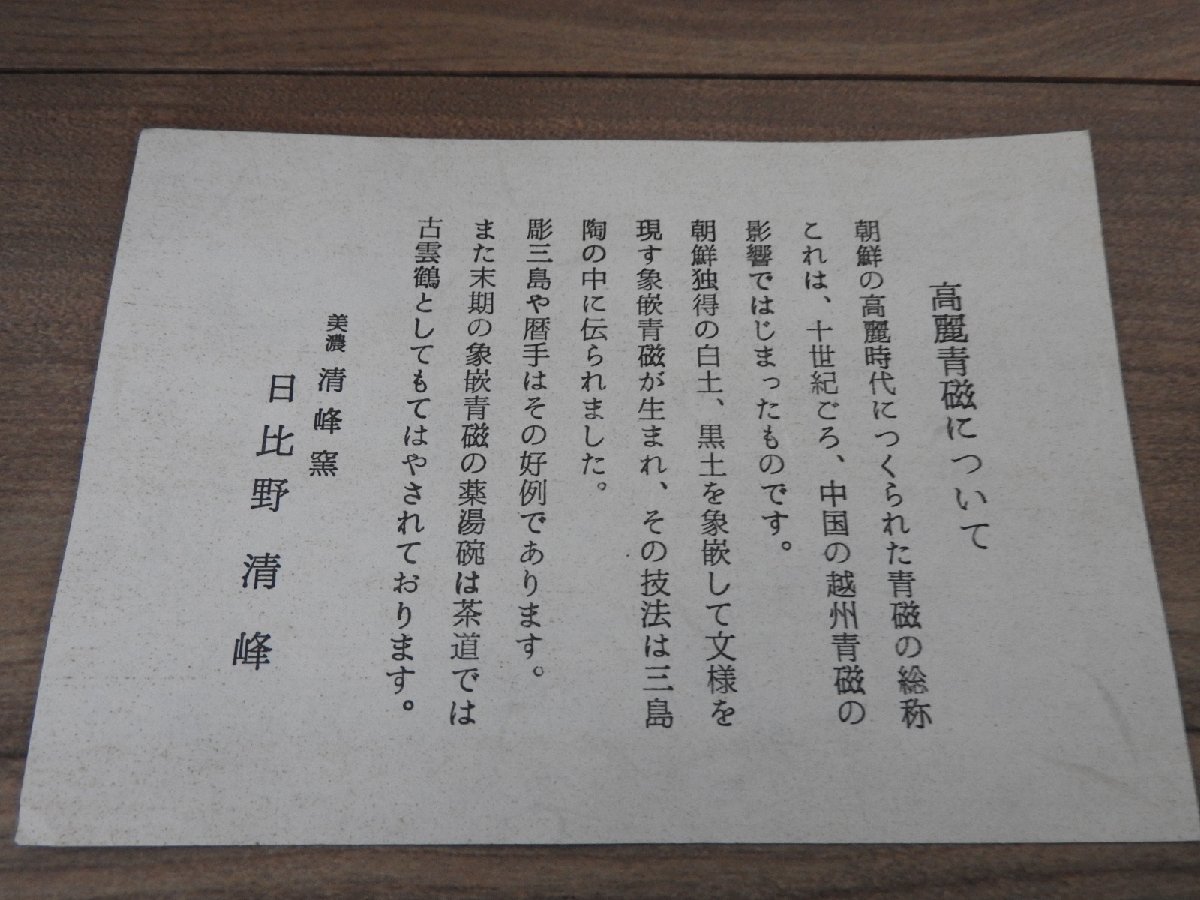 高麗青磁について
朝鮮の高麗時代につくられた青磁の総称
これは、十世紀ごろ、中国の越州青磁の
影響ではじまったものです。
朝鮮独得の白土、黒土を象嵌して文様を
現す象嵌青磁が生まれ、その技法は三島
陶の中に伝られました。
彫三島や暦手はその好例であります。
また末期の象嵌青磁の薬湯碗は茶道では
古雲鶴としてもてはやされております。
美濃 清峰窯
日比野清峰